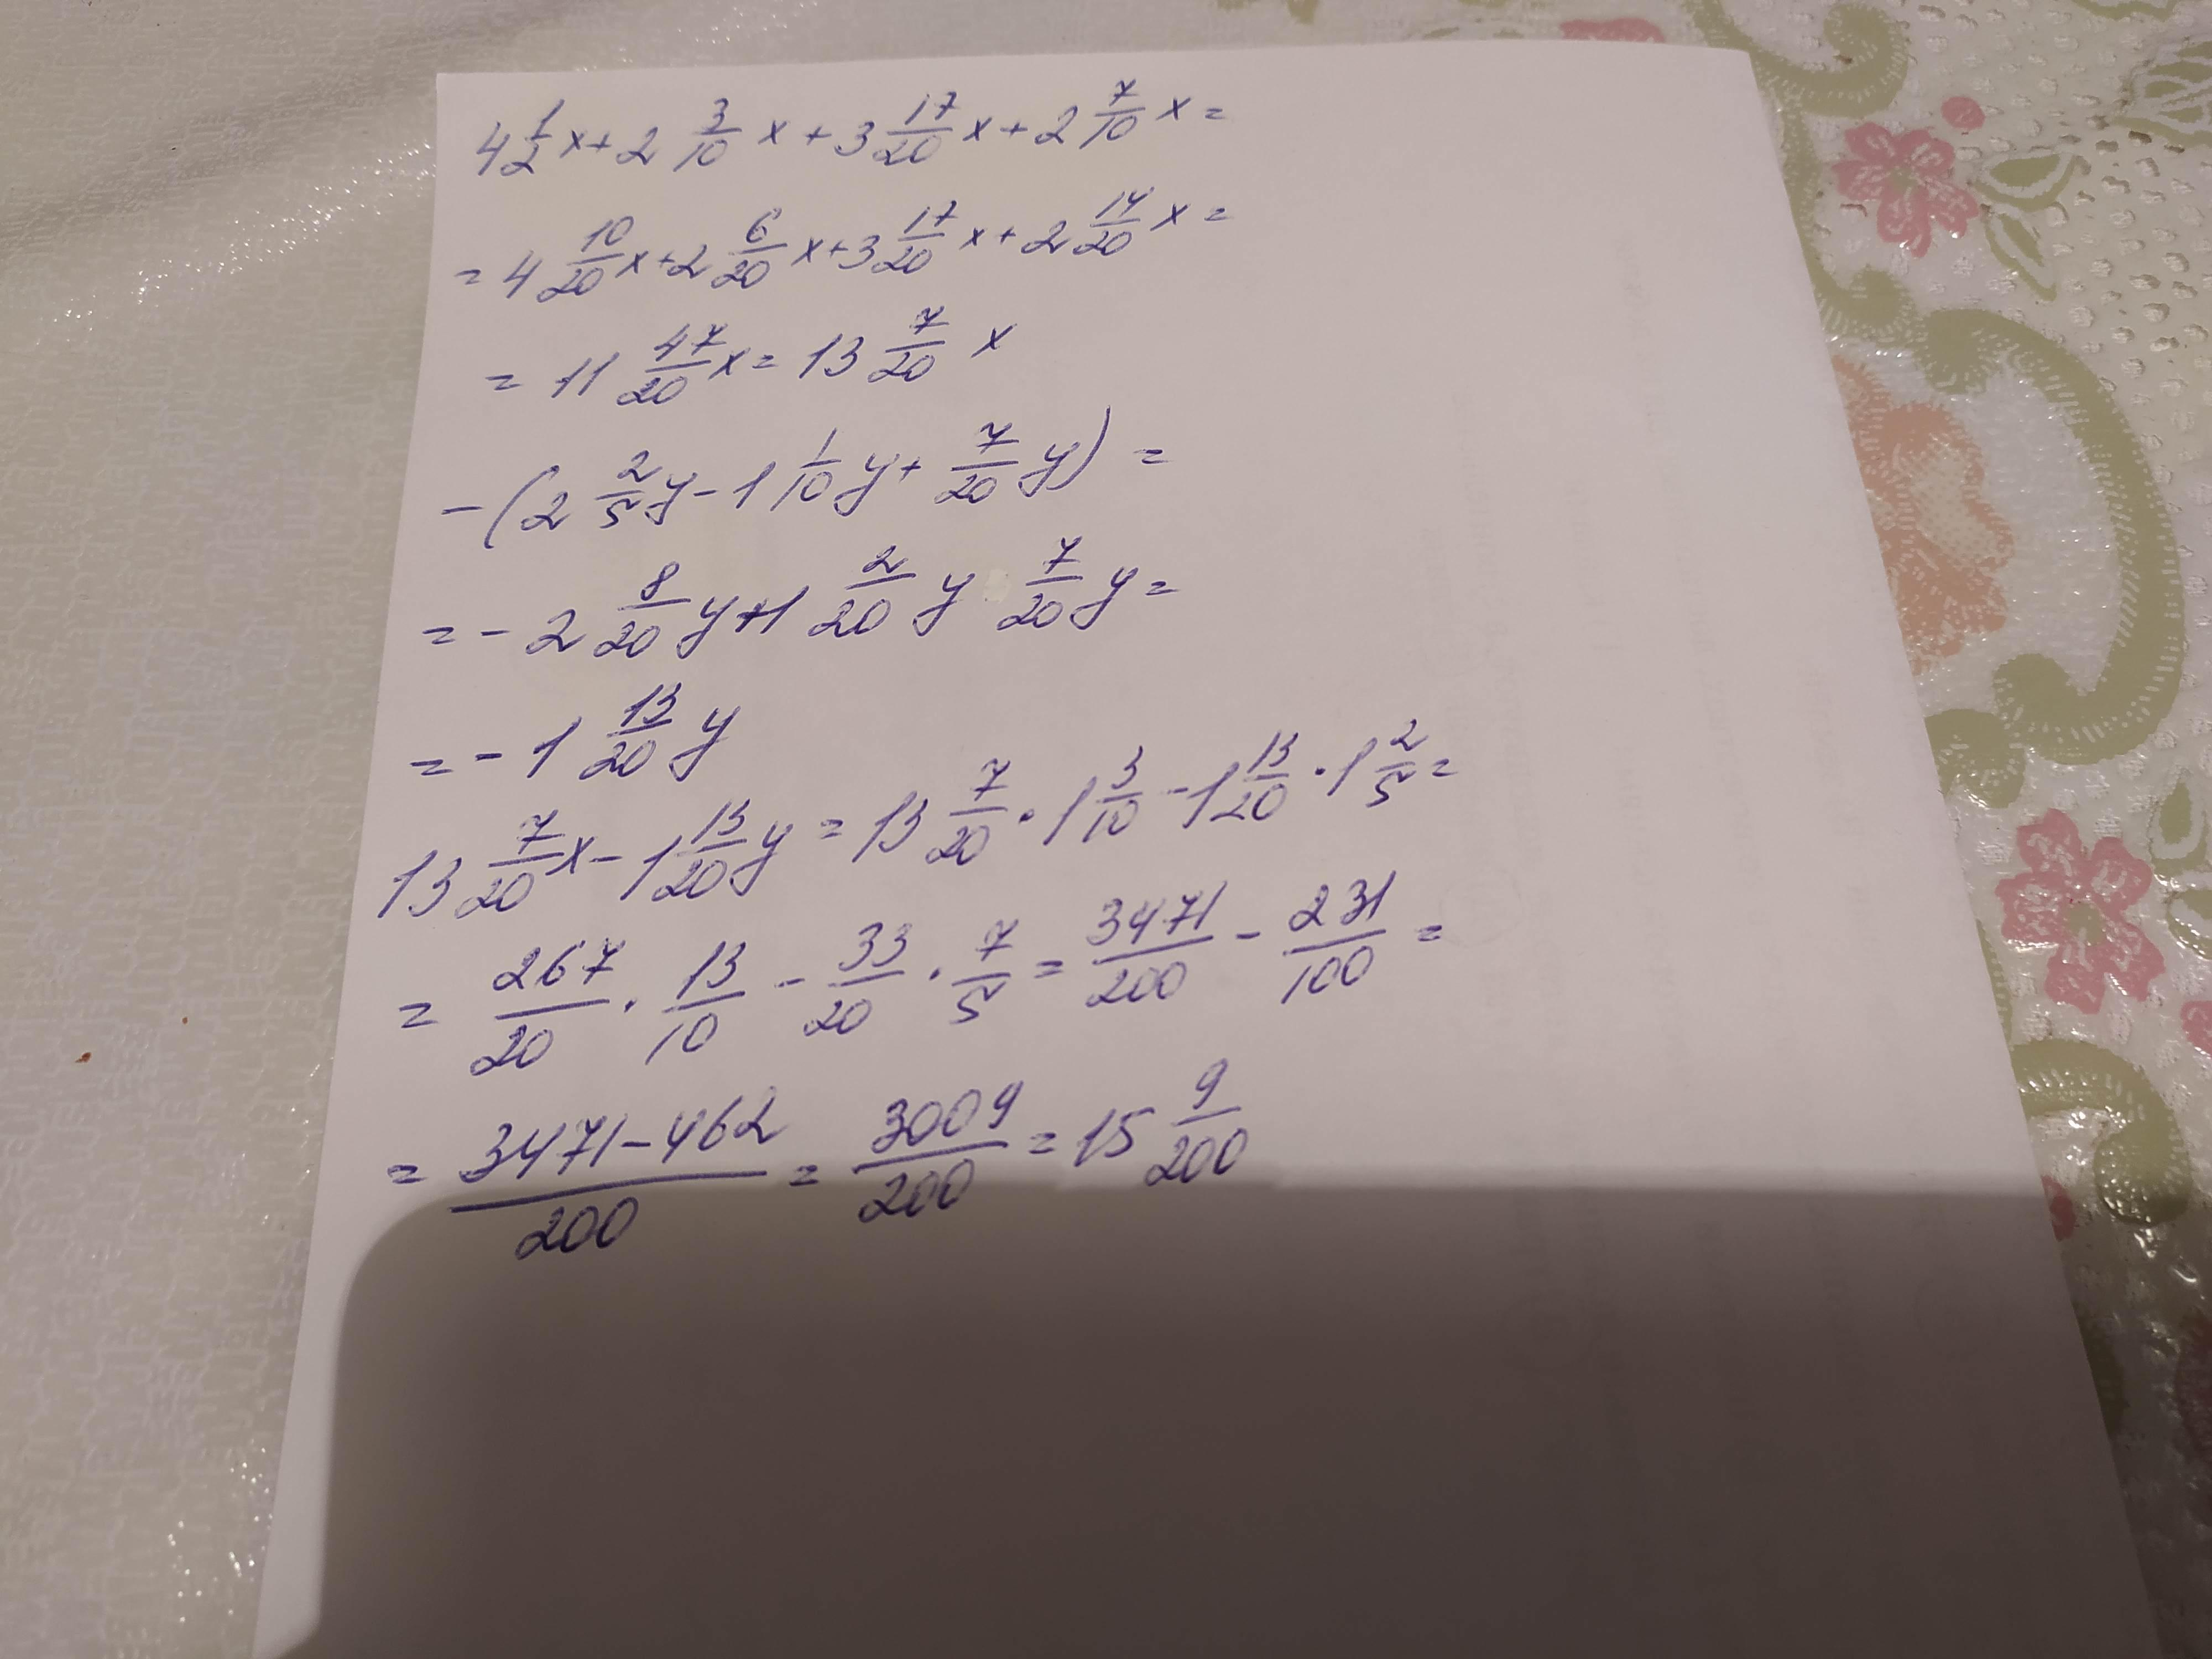 4 1/2 x + 2 3/10 x + 3 17/20 x + 2 7/10 x =
= 4 10/20 x + 2 6/20 x + 3 17/20 x + 2 14/20 x =
= 11 47/20 x = 13 7/20 x
- (2 2/5 y - 1 1/10 y + 7/20 y) =
= - 2 8/20 y + 1 2/20 y 7/20 y =
= - 1 13/20 y
13 7/20 x - 1 13/20 y = 13 7/20 · 1 3/10 - 1 13/20 · 1 2/5 =
= 267/20 · 13/10 - 33/20 · 7/5 = 3471/200 - 231/100 =
= 3471-462/200 = 3009/200 = 15 9/200